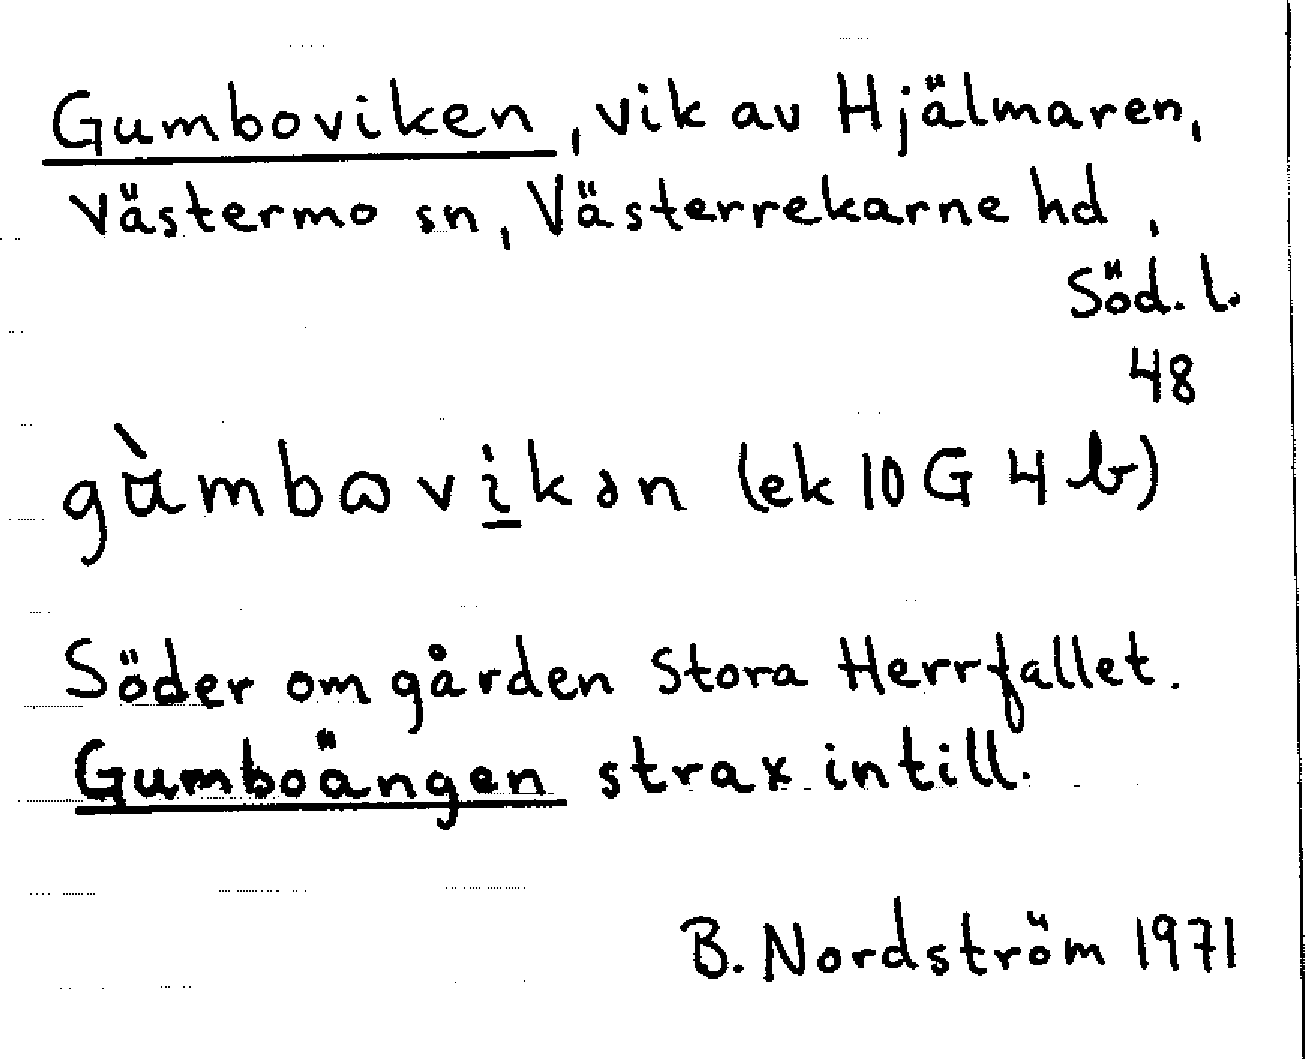 Gumboviken, vik av Hjälmaren,
Västermo sn, Västerrekarne hd,
Söd. l.
48
gùmbɷvi̲kən (ek 10G 4b)
Söder om gården Stora Herrfallet.
Gumboängen strax intill.
B. Nordström 1971